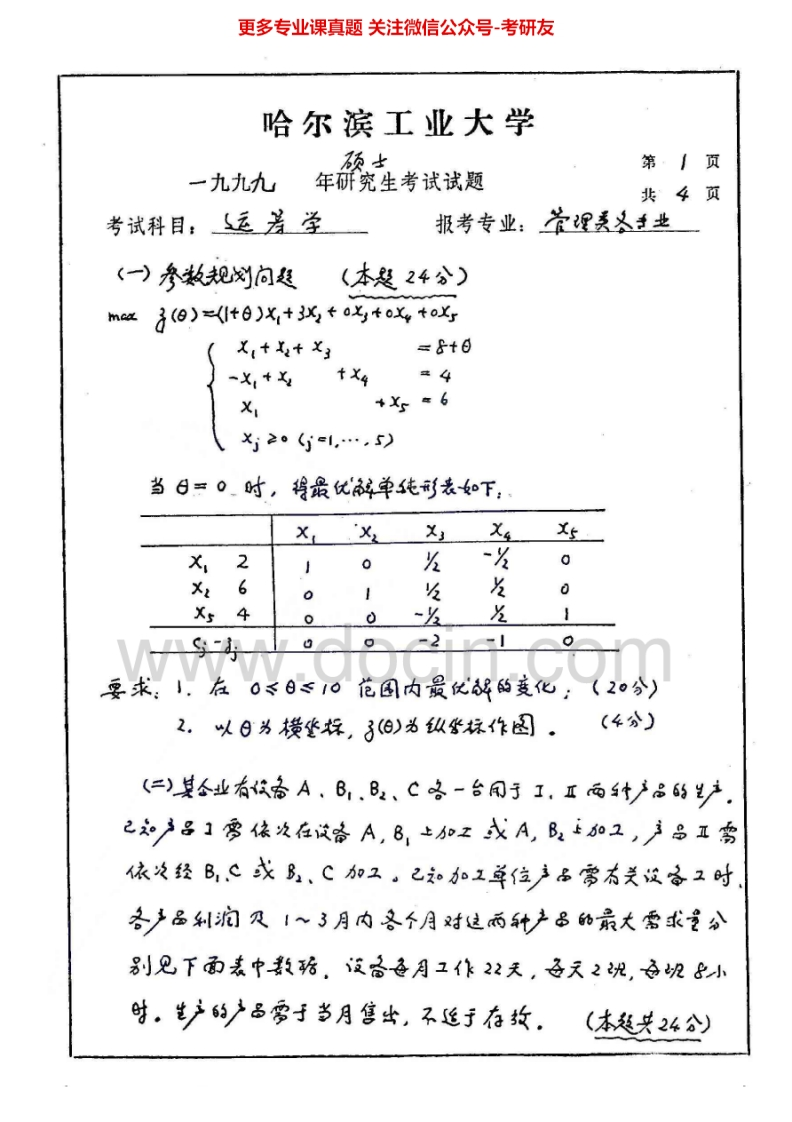 更多专业课真题 关注微信公众号-考研友
哈尔滨工业大学
硕士
第 1 页
一九九九 年研究生考试试题
共 4 页
考试科目：运筹学 报考专业：管理类各专业
(一) 参数规划问题 (本题24分)
max z(θ)=(1+θ)x₁+3x₂+0x₃+0x₄+0x₅
x₁+x₂+x₃ =8+θ
-x₁+x₂ +x₄ =4
x₁ +x₅ =6
xⱼ≥0 (j=1,…,5)
当θ=0时，得最优解单纯形表如下：
x₁ x₂ x₃ x₄ x₅
x₁ 2 1 0 ½ -½ 0
x₂ 6 0 1 ½ ½ 0
x₅ 4 0 0 -½ ½ 1
cⱼ-zⱼ 0 0 -2 -1 0
www.docin.com
要求：1. 在 0≤θ≤10 范围内最优解的变化；(20分)
2. 以θ为横坐标，z(θ)为纵坐标作图。 (4分)
(二) 某企业有设备A、B₁、B₂、C各一台用于I、II两种产品的生产。
已知产品I需依次在设备A, B₁上加工或A, B₂上加工，产品II需
依次经B₁、C或B₂、C加工。已知加工单位产品需有关设备工时，
各产品利润及1～3月内各个月对这两种产品的最大需求量分
别见下面表中数据。设备每月工作22天，每天2班，每班8小
时。生产的产品需于当月售出，不适于存放。 (本题共24分)